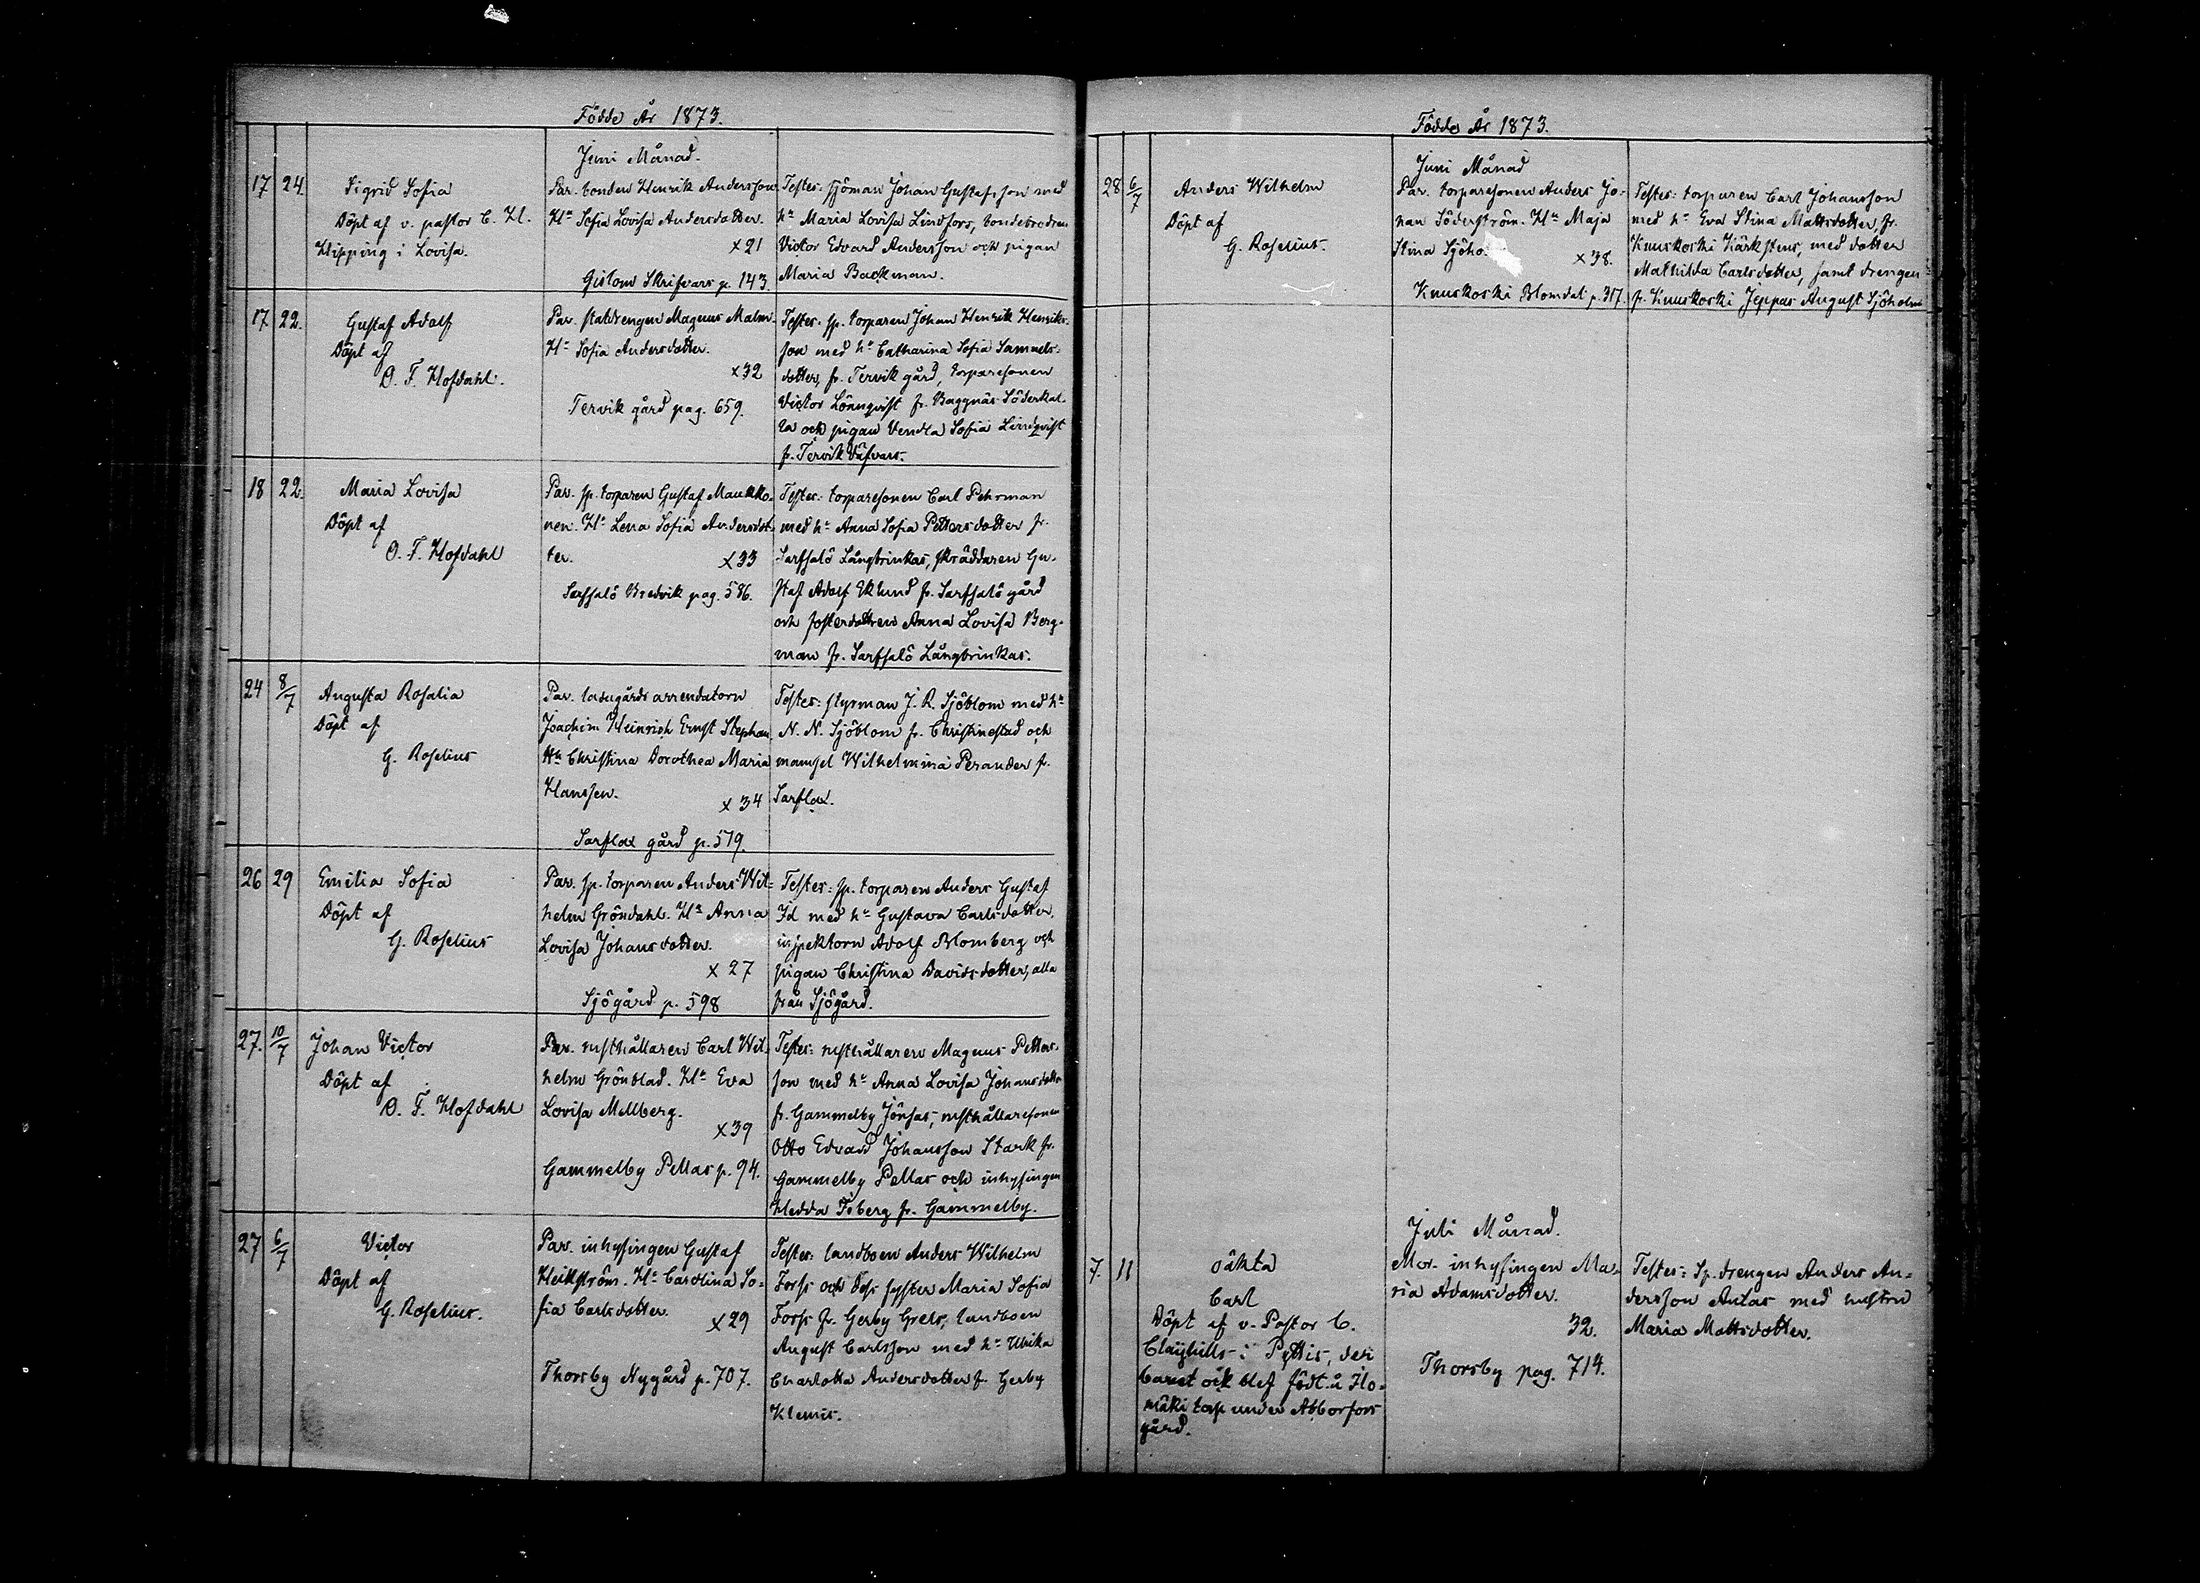 Födde År 1873.
Juni Månad.
17 24. Sigrid Sofia
Döpt af v. pastor C. H.
Klipping i Lovisa.
Par. bonden Henrik Andersson
H:u Sofia Lovisa Andersdotter.
x21
Gislom Skrifvars p. 143.
Testes: sjöman Johan Gustafsson med
h:u Maria Lovisa Lindfors, bondebrodren
Victor Edvard Andersson och pigan
Maria Backman.
17 22. Gustaf Adolf
Döpt af
O. F. Hofdahl.
Par. statdrengen Magnus Malm.
H:u Sofia Andersdotter.
x32
Tervik gård pag. 659.
Testes: sp. torparen Johan Henrik Henriks-
son med h:u Catharina Sofia Samuels-
dotter, fr. Tervik gård, torparesonen
Victor Lönnqvist fr. Baggnäs Söderkul-
la och pigan Vendla Sofia Lindqvist
fr. Tervik Däfvars.
18 22. Maria Lovisa
Döpt af
O. F. Hofdahl
Par. sp. torparen Gustaf Maukko-
nen. H:u Lena Sofia Andersdot-
ter.
x33
Sarfsalö Bredvik pag. 586.
Testes: torparesonen Carl Pehrman
med h:u Anna Sofia Pettersdotter fr.
Sarfsalö Långbrinkas, skräddaren Gu-
staf Adolf Eklund fr. Sarfsalö gård
och fosterdottren Anna Lovisa Berg-
man fr. Sarfsalö Långbrinkas.
24 8/7 Augusta Rosalia
Döpt af
G. Roselius
Par. ladugårdsarrendatorn
Joachim Heinrich Ernst Stephan
H:u Christina Dorothea Maria
Hanssen.
x 34
Sarflax gård p. 579.
Testes: styrman J. R. Sjöblom med h:u
N. N. Sjöblom fr. Christinestad och
mamsel Wilhelmina Perander fr.
Sarflax.
26 29 Emilia Sofia
Döpt af
G. Roselius
Par. sp. torparen Anders Wil-
helm Gröndahl. H:u Anna
Lovisa Johansdotter.
x 27
Sjögård p. 598
Testes: sp. torparen Anders Gustaf
Id med h:u Gustava Carlsdotter,
inspektorn Adolf Blomberg och
pigan Christina Davidsdotter, alla
från Sjögård.
27. 10/7 Johan Victor
Döpt af
O. F. Hofdahl
Par. rusthållaren Carl Wil-
helm Grönblad. H:u Eva
Lovisa Mellberg.
x39
Gammelby Pellas p. 94.
Testes: rusthållaren Magnus Petters-
son med h:u Anna Lovisa Johansdotter
fr. Gammelby Jönsas, rusthållaresonen
Otto Edvard Johansson Stark fr.
Gammelby Pellas och inhysingen
Hedda Friberg fr. Gammelby.
27 6/7 Victor
Döpt af
G. Roselius.
Par. inhysingen Gustaf
Heikström. H:u Carolina So-
fia Carlsdotter.
x29
Thorsby Nygård p. 707.
Testes: landboen Anders Wilhelm
Forss och dess syster Maria Sofia
Forss fr. Gerby Grels, landboen
August Carlsson med h:u Ulrika
Charlotta Andersdotter fr. Gerby
Klemis.
Födde År 1873.
Juni Månad
28 6/7 Anders Wilhelm
Döpt af
G. Roselius.
Par. torparesonen Anders Jo-
han Söderström. H:u Maja
Stina Sjöho
x 38.
Knuskoski Blomdal p. 317.
Testes: torparen Carl Johansson
med h:u Eva Stina Mattsdotter, fr.
Knuskoski Kärkstens, med dotter
Mathilda Carlsdotter, samt drengen
fr. Knuskoski Jeppas August Sjöholm
Juli Månad.
7. 11 oäkta
Carl
Döpt af v. Pastor C.
Clayhills i Pyttis, der
barnet ock blef födt å Ilo-
mäki torp under Abborfors
gård.
Mor. inhysingen Ma-
ria Adamsdotter.
32.
Thorsby pag. 714.
Testes: Sp. drengen Anders An-
dersson Antas med hustru
Maria Mattsdotter.